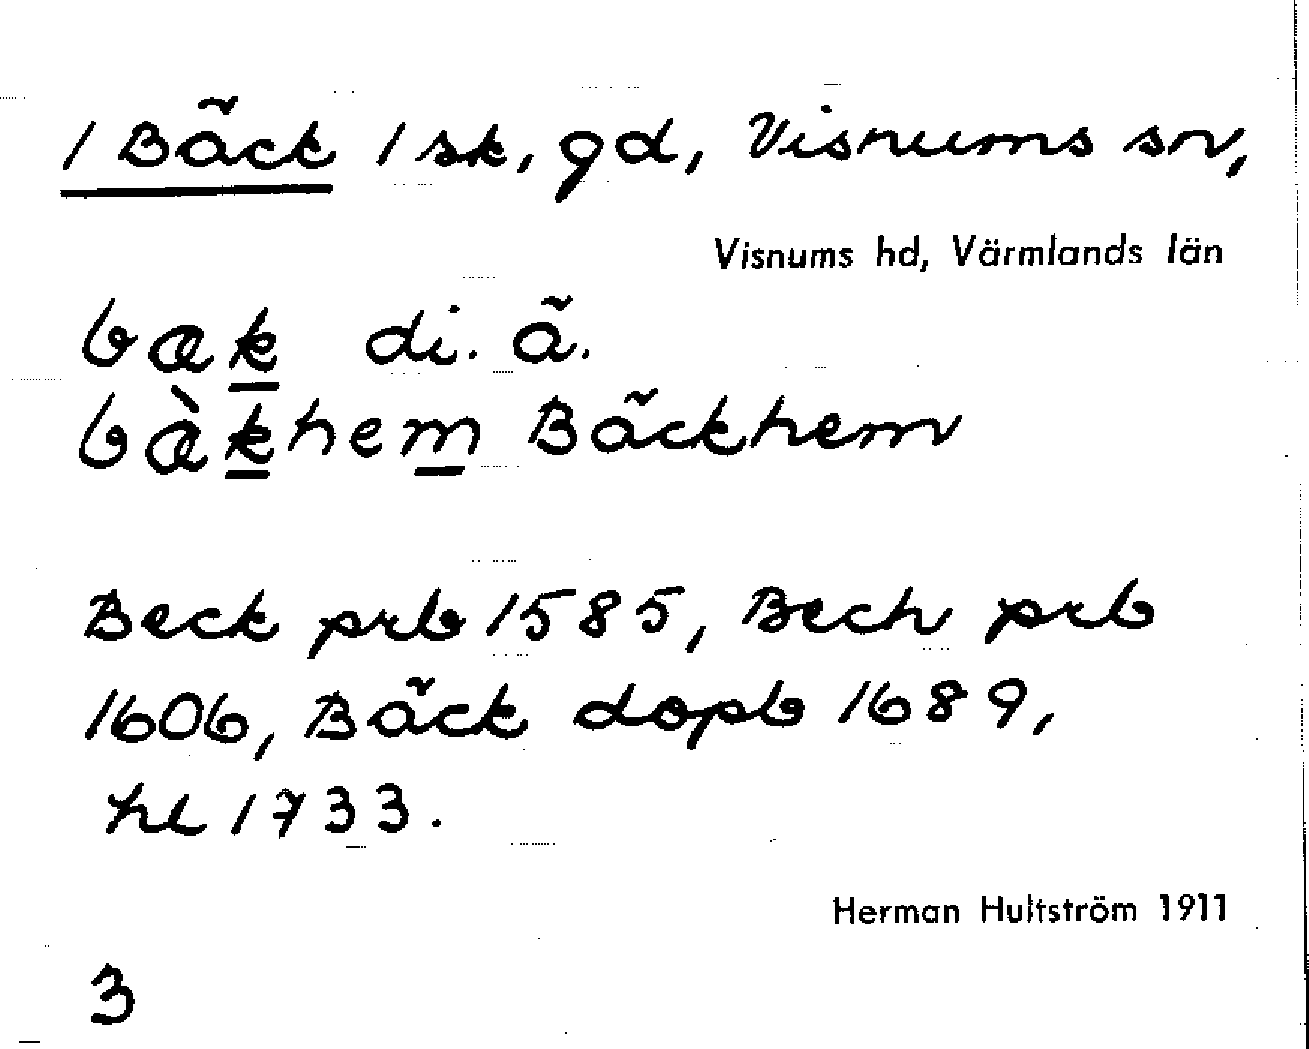 1 Bäck 1 sk, gd, Visnums sn,
Visnums hd, Värmlands län
bæk di. ä.
bæ̀khem Bäckhem
Beck prb 1585, Bech prb
1606, Bäck dopb 1689,
hl 1733.
Herman Hultström 1911
3